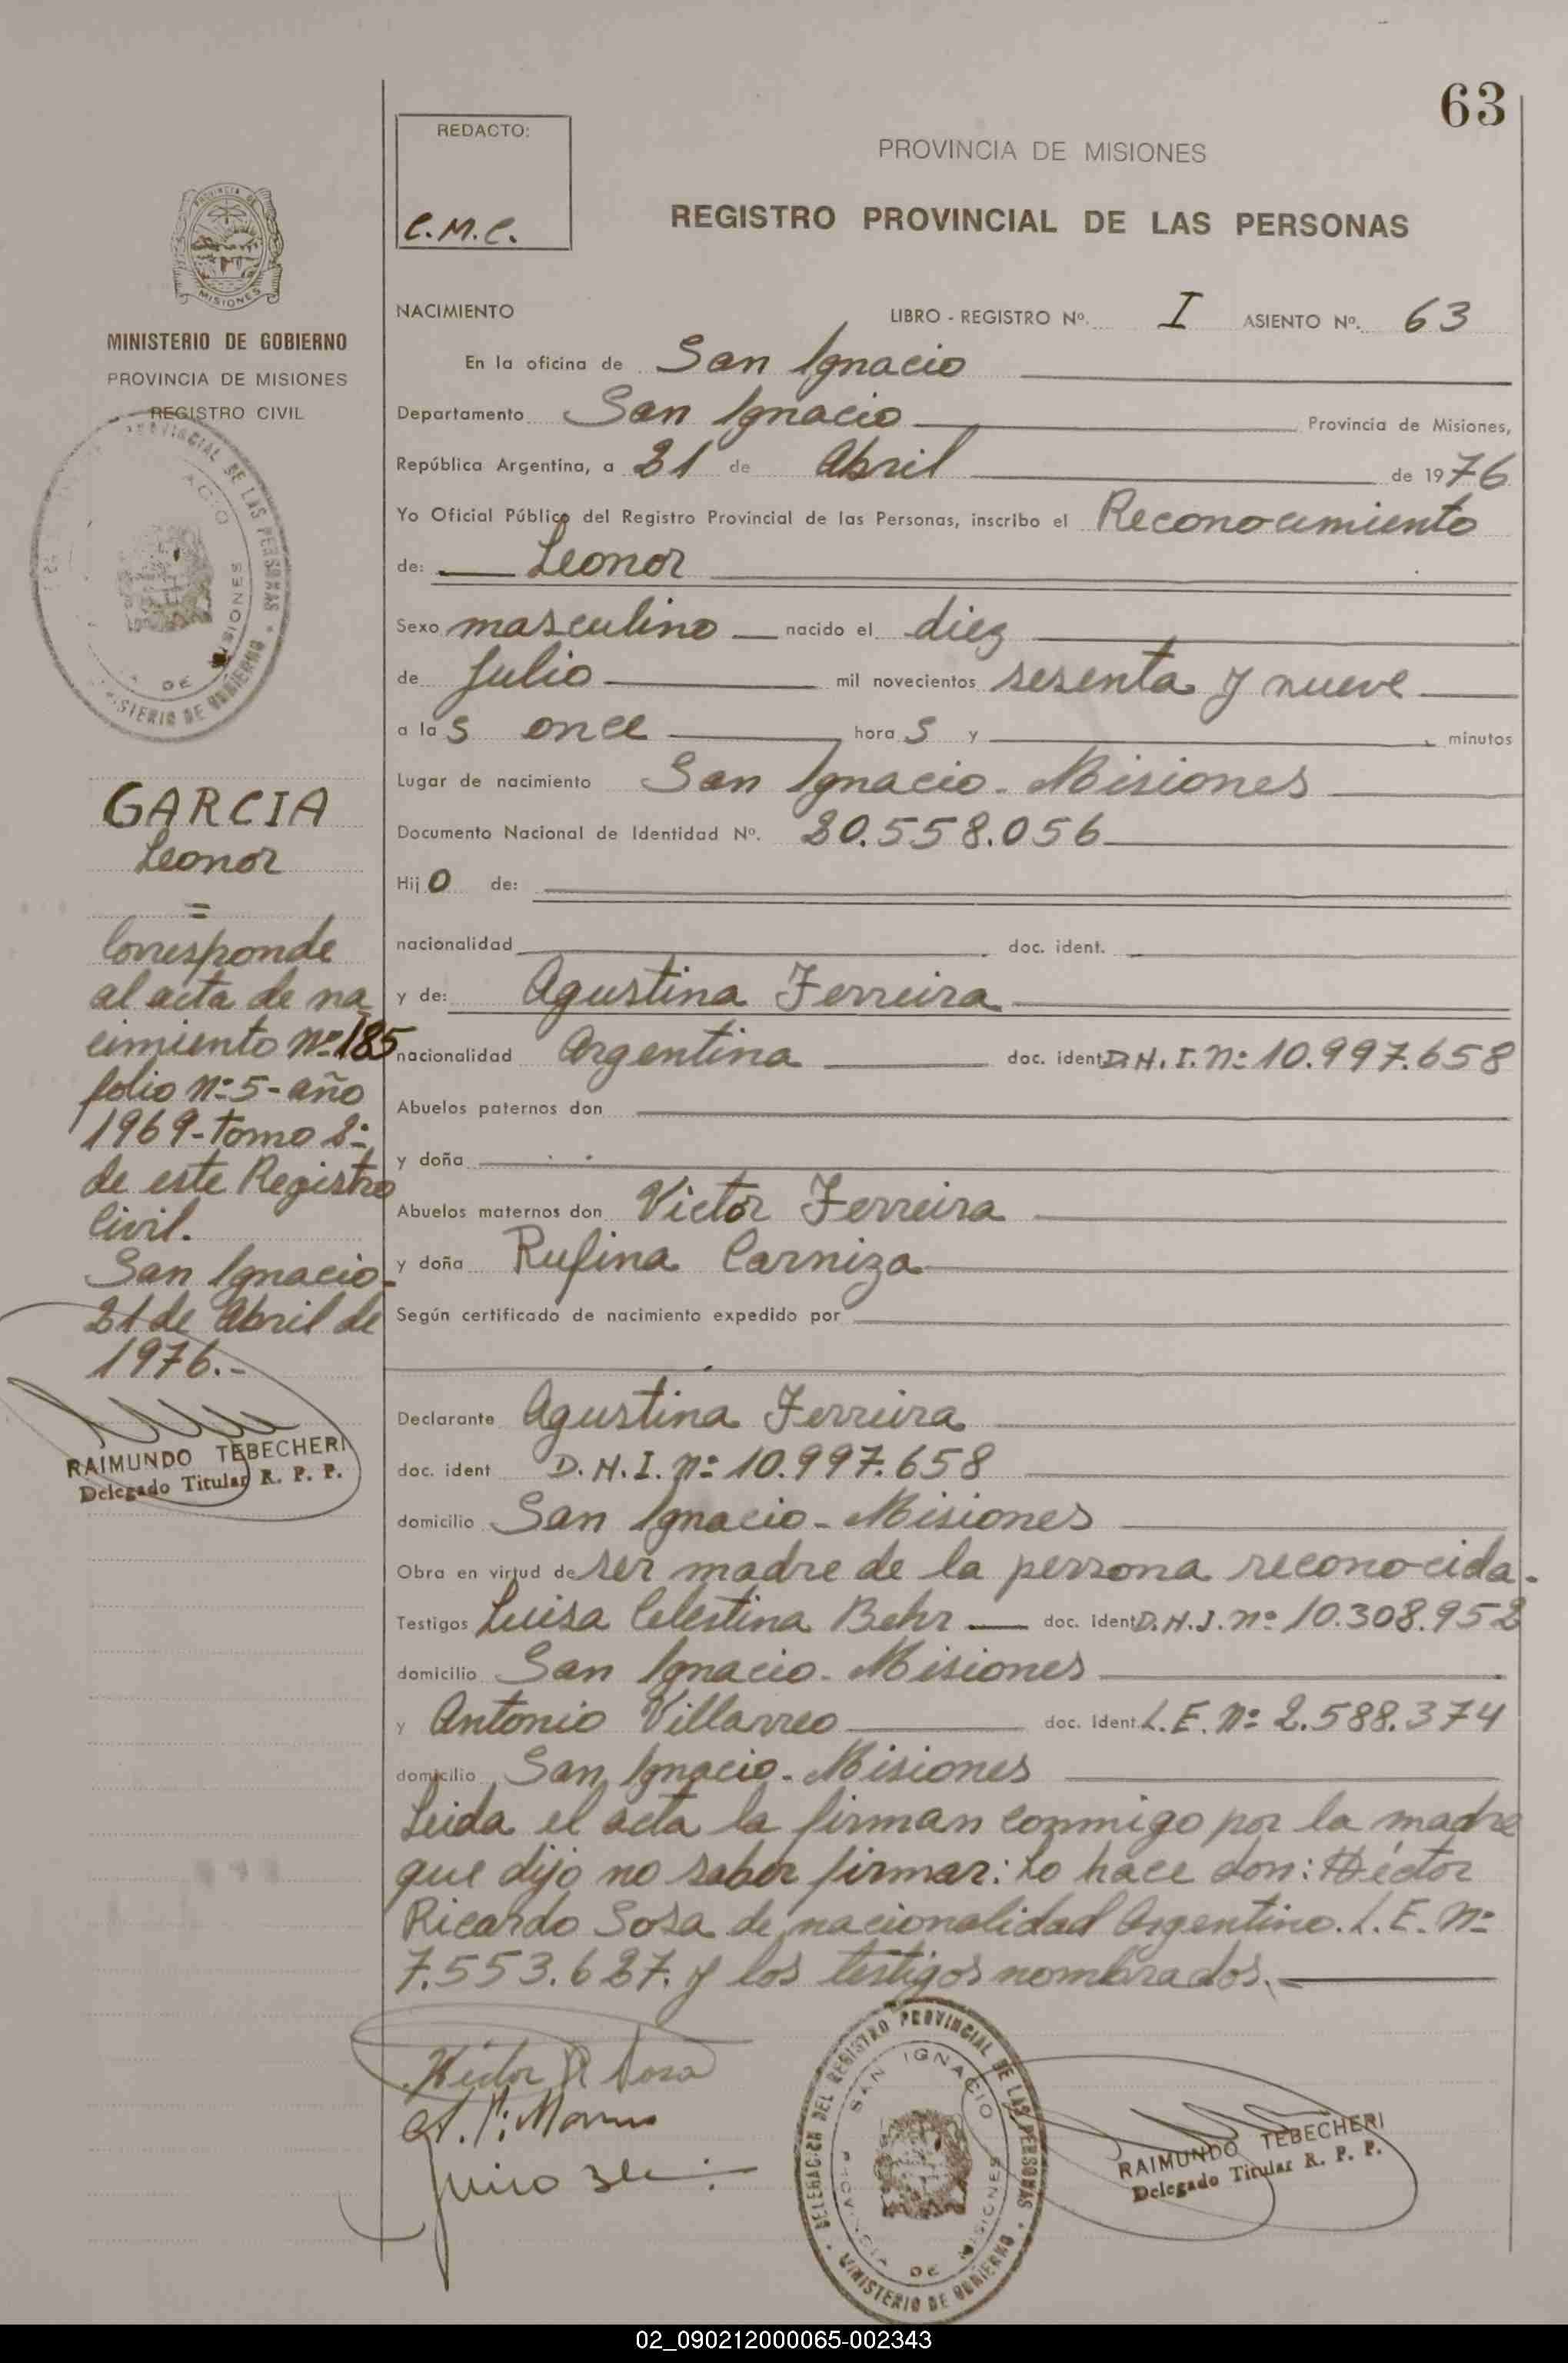 63
REDACTO:
C.M.C.
PROVINCIA DE MISIONES
REGISTRO PROVINCIAL DE LAS PERSONAS
MISIONES
MINISTERIO DE GOBIERNO
PROVINCIA DE MISIONES
REGISTRO CIVIL
NACIMIENTO LIBRO - REGISTRO Nº. I ASIENTO Nº. 63
En la oficina de San Ignacio
Departamento San Ignacio Provincia de Misiones,
República Argentina, a 21 de Abril de 1976
Yo Oficial Público del Registro Provincial de las Personas, inscribo el Reconocimiento
de: Leonor
Sexo masculino nacido el diez
de Julio mil novecientos sesenta y nueve
a las once horas y minutos
Lugar de nacimiento San Ignacio - Misiones
Documento Nacional de Identidad Nº. 20.558.056
Hijo de:
nacionalidad doc. ident.
y de: Agustina Ferreira
nacionalidad Argentina doc. ident D.N.I. Nº 10.997.658
Abuelos paternos don
y doña
Abuelos maternos don Victor Ferreira
y doña Rufina Carniza
Según certificado de nacimiento expedido por
Declarante Agustina Ferreira
doc. ident D.N.I. Nº 10.997.658
domicilio San Ignacio - Misiones
Obra en virtud de ser madre de la persona reconocida.
Testigos Luisa Celestina Behr doc. ident D.N.I. Nº 10.308.952
domicilio San Ignacio - Misiones
y Antonio Villarreo doc. ident. L.E. Nº 2.588.374
domicilio San Ignacio - Misiones
Leida el acta la firman conmigo por la madre
que dijo no saber firmar: Lo hace don: Héctor
Ricardo Sosa de nacionalidad Argentino. L.E. Nº
7.553.627. y los testigos nombrados.
GARCIA
Leonor
=
Corresponde
al acta de na
cimiento Nº 185
folio Nº 5 - año
1969 - Tomo 2º
de este Registro
Civil.
San Ignacio -
21 de Abril de
1976.-
RAIMUNDO TEBECHERI
Delegado Titular R. P. P.
Héctor R Sosa
DELEGACION DEL REGISTRO PROVINCIAL DE LAS PERSONAS
SAN IGNACIO
PROVINCIA DE MISIONES
MINISTERIO DE GOBIERNO
RAIMUNDO TEBECHERI
Delegado Titular R. P. P.
02_090212000065-002343